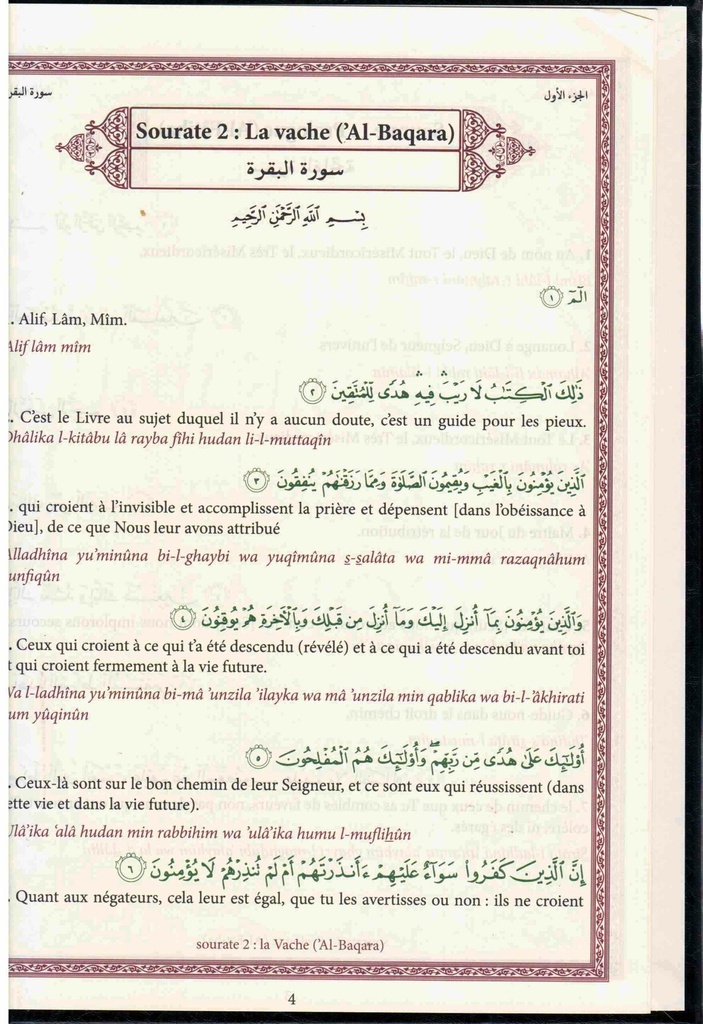 سورة البقر
الجزء الأول
Sourate 2 : La vache ('Al-Baqara)
سورة البقرة
بِسْمِ اللَّهِ الرَّحْمَٰنِ الرَّحِيمِ
الٓمٓ ١
. Alif, Lâm, Mîm.
Alif lâm mîm
ذَٰلِكَ الْكِتَٰبُ لَا رَيْبَ ۛ فِيهِ ۛ هُدًى لِّلْمُتَّقِينَ ٢
. C'est le Livre au sujet duquel il n'y a aucun doute, c'est un guide pour les pieux.
Dhâlika l-kitâbu lâ rayba fîhi hudan li-l-muttaqîn
الَّذِينَ يُؤْمِنُونَ بِالْغَيْبِ وَيُقِيمُونَ الصَّلَوٰةَ وَمِمَّا رَزَقْنَٰهُمْ يُنفِقُونَ ٣
. qui croient à l'invisible et accomplissent la prière et dépensent [dans l'obéissance à
Dieu], de ce que Nous leur avons attribué
Alladhîna yu'minûna bi-l-ghaybi wa yuqîmûna s-salâta wa mi-mmâ razaqnâhum
unfiqûn
وَالَّذِينَ يُؤْمِنُونَ بِمَآ أُنزِلَ إِلَيْكَ وَمَآ أُنزِلَ مِن قَبْلِكَ وَبِالْآخِرَةِ هُمْ يُوقِنُونَ ٤
. Ceux qui croient à ce qui t'a été descendu (révélé) et à ce qui a été descendu avant toi
t qui croient fermement à la vie future.
Wa l-ladhîna yu'minûna bi-mâ 'unzila 'ilayka wa mâ 'unzila min qablika wa bi-l-'âkhirati
um yûqinûn
أُو۟لَٰٓئِكَ عَلَىٰ هُدًى مِّن رَّبِّهِمْ ۖ وَأُو۟لَٰٓئِكَ هُمُ الْمُفْلِحُونَ ٥
. Ceux-là sont sur le bon chemin de leur Seigneur, et ce sont eux qui réussissent (dans
ette vie et dans la vie future).
Ulâ'ika 'alâ hudan min rabbihim wa 'ulâ'ika humu l-muflihûn
إِنَّ الَّذِينَ كَفَرُوا۟ سَوَآءٌ عَلَيْهِمْ ءَأَنذَرْتَهُمْ أَمْ لَمْ تُنذِرْهُمْ لَا يُؤْمِنُونَ ٦
. Quant aux négateurs, cela leur est égal, que tu les avertisses ou non : ils ne croient
sourate 2 : la Vache ('Al-Baqara)
4